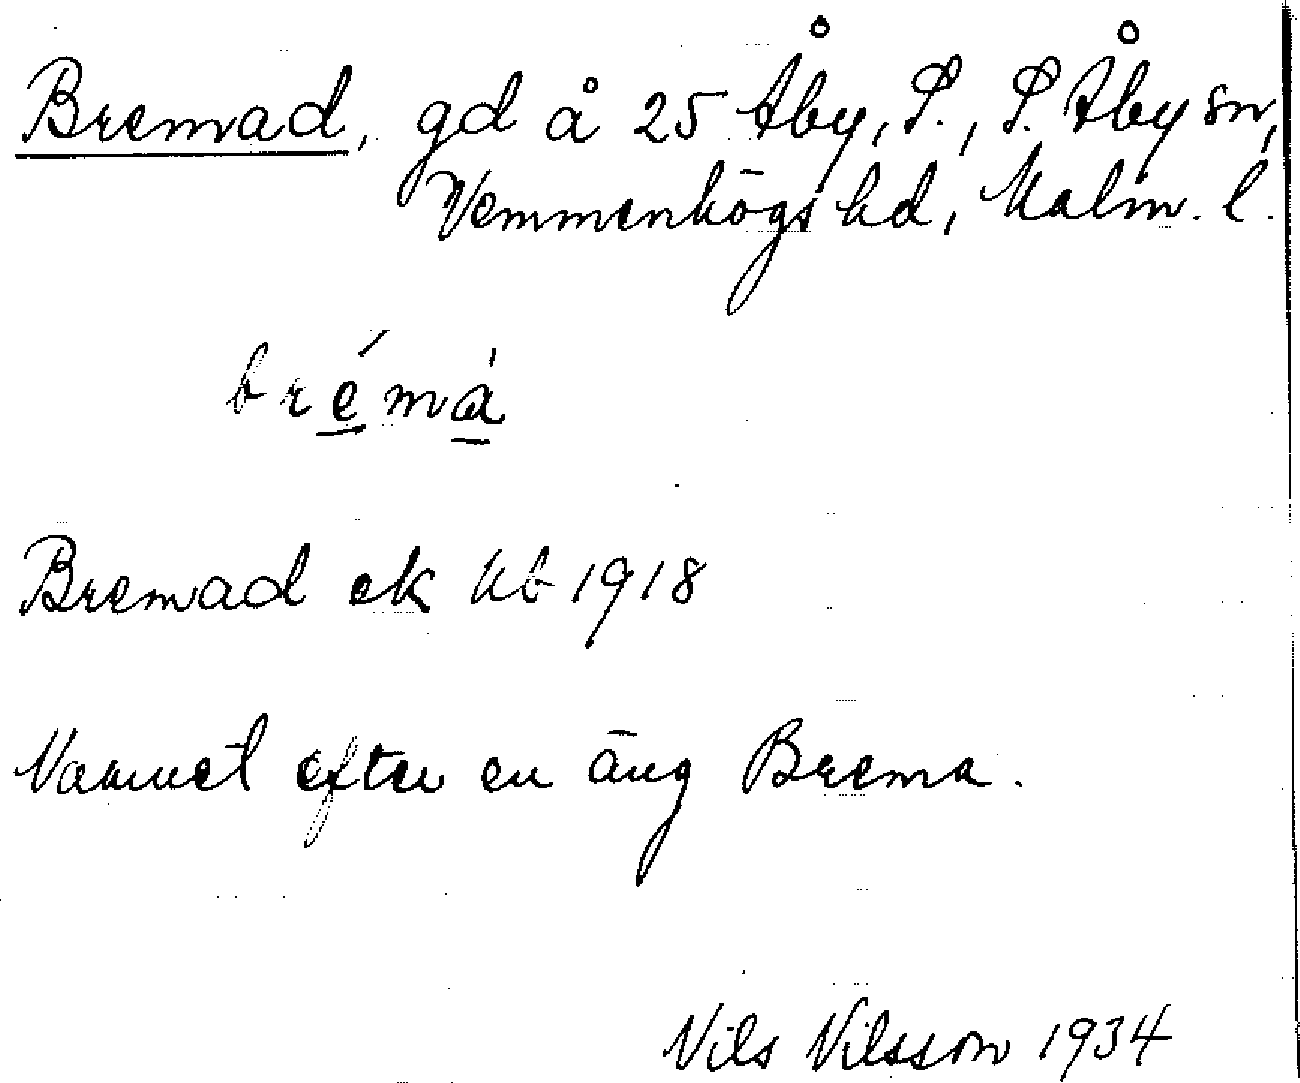 Bremad, gd å 25 Åby, S., S. Åby sn,
Vemmenhögs hd, Malm. l.
brémà
Bremad ek kb 1918
Namnet efter en äng Brema.
Nils Nilsson 1934